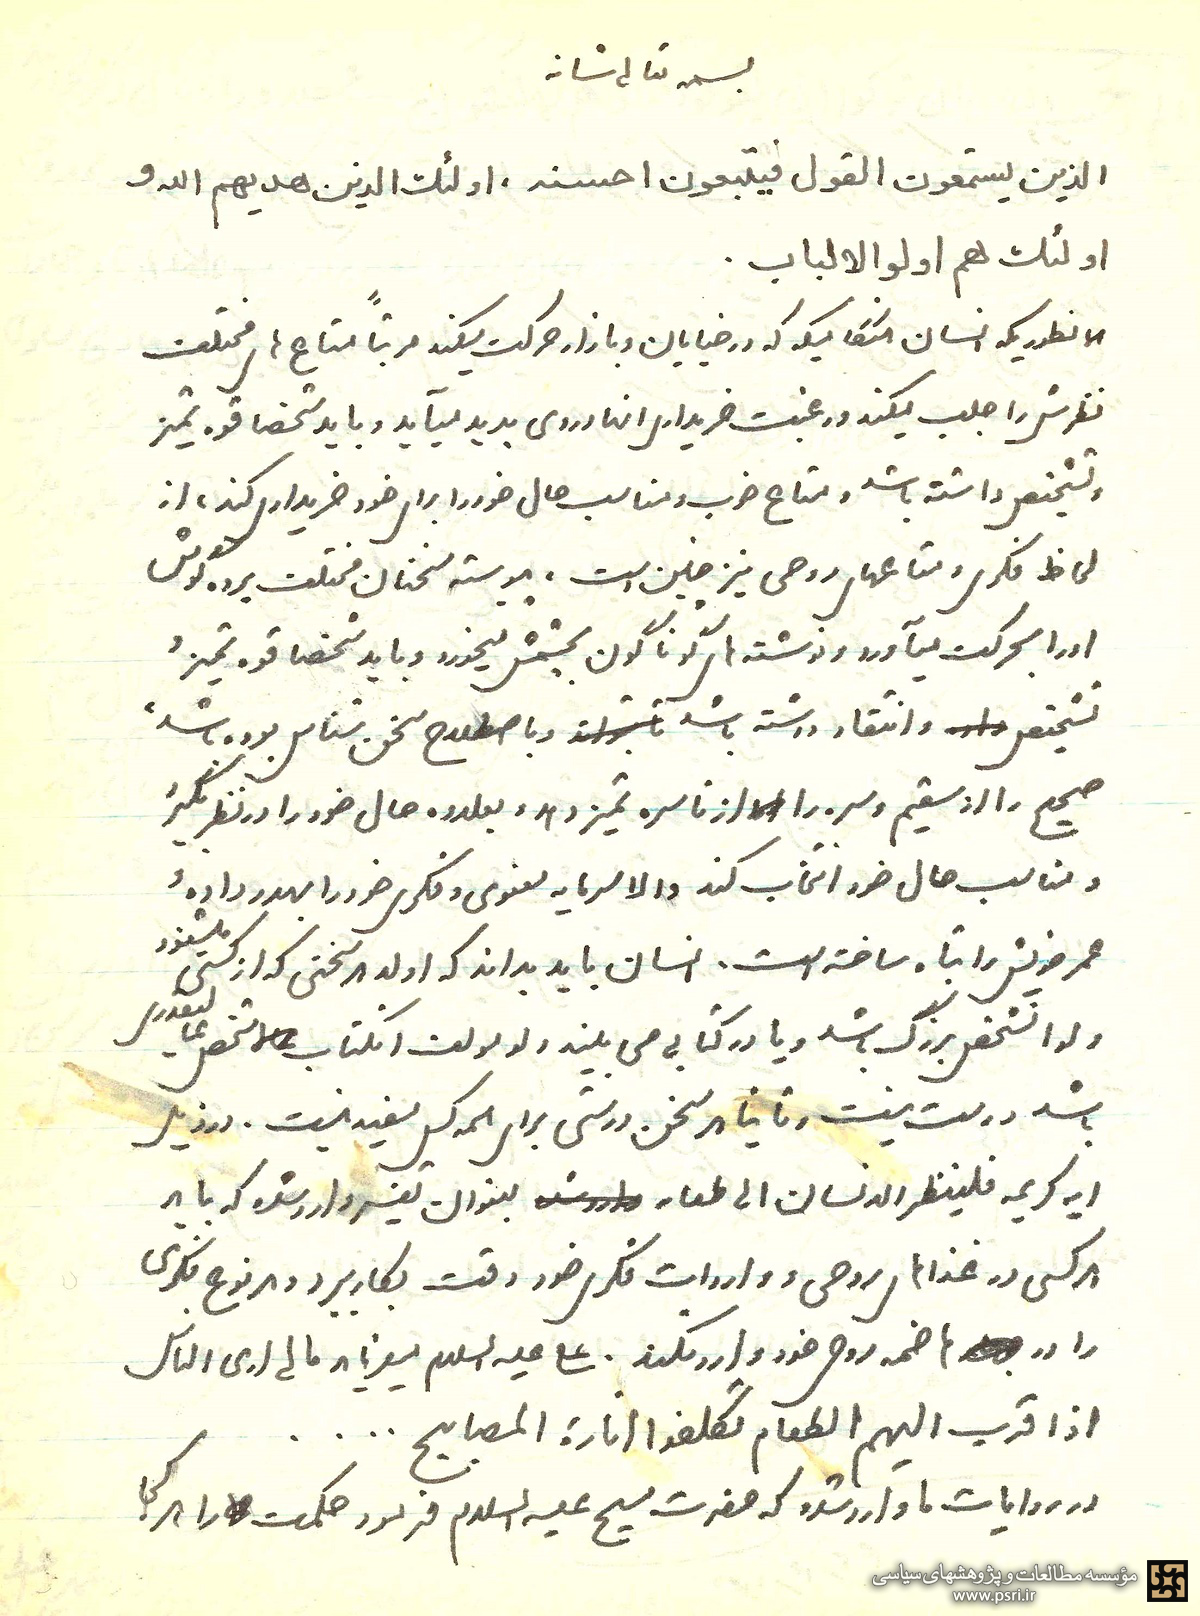 بسمه تعالی شانه
الذین یستمعون القول فیتبعون احسنه ، اولئک الذین هدیهم الله و
اولئک هم اولوا الالباب .
همانطوریکه انسان هنگامیکه که در خیابان و بازار حرکت میکند مرتباً متاع های مختلف
نظرش را جلب میکند و رغبت خریداری انها در وی پدید میآید و باید شخصا قوه تمیز
و تشخیص داشته باشد و متاع خوب و مناسب حال خود را برای خود خریداری کند ، از
لحاظ فکری و متاعهای روحی نیز چنین است ، پیوسته سخنان مختلف پرده گوش
او را بحرکت میآورد و نوشته های گوناگون بچشمش میخورد و باید شخصا قوه تمیز و
تشخیص و انتقاد داشته باشد و باصطلاح سخن شناس بوده باشد ،
صحیح را از سقیم و سره را از ناسره تمیز دهد و بعلاوه حال خود را در نظر بگیرد
و مناسب حال خود انتخاب کند والا سرمایه معنوی و فکری خود را بهدر داده و
عمر خویش را تباه ساخته است . انسان باید بداند که اولا هر سخنی که از کسی میشنود
ولو انشخص بزرگ باشد و یا در کتابی می بیند ولو مولف انکتاب شخص عالیقدری
باشد درست نیست و ثانیا هر سخن درستی برای همه کس مفید نیست . در ذیل
ایه کریمه فلینظر الانسان الی طعامه بعنوان تفسیر وارد شده که باید
هر کسی در غذاهای روحی و واردات فکری خود دقت بکار ببرد و هر نوع فکری
را در هاضمه روحی خود وارد نکند . علی علیه السلام میفرماید مالی اری الناس
اذا قرب الیهم الطعام تکلفوا انارة المصابیح . . . .
در روایات ما وارد شده که حضرت مسیح علیه السلام فرمود حکمت را هر کجا
مؤسسه مطالعات و پژوهشهای سیاسی
www.psri.ir